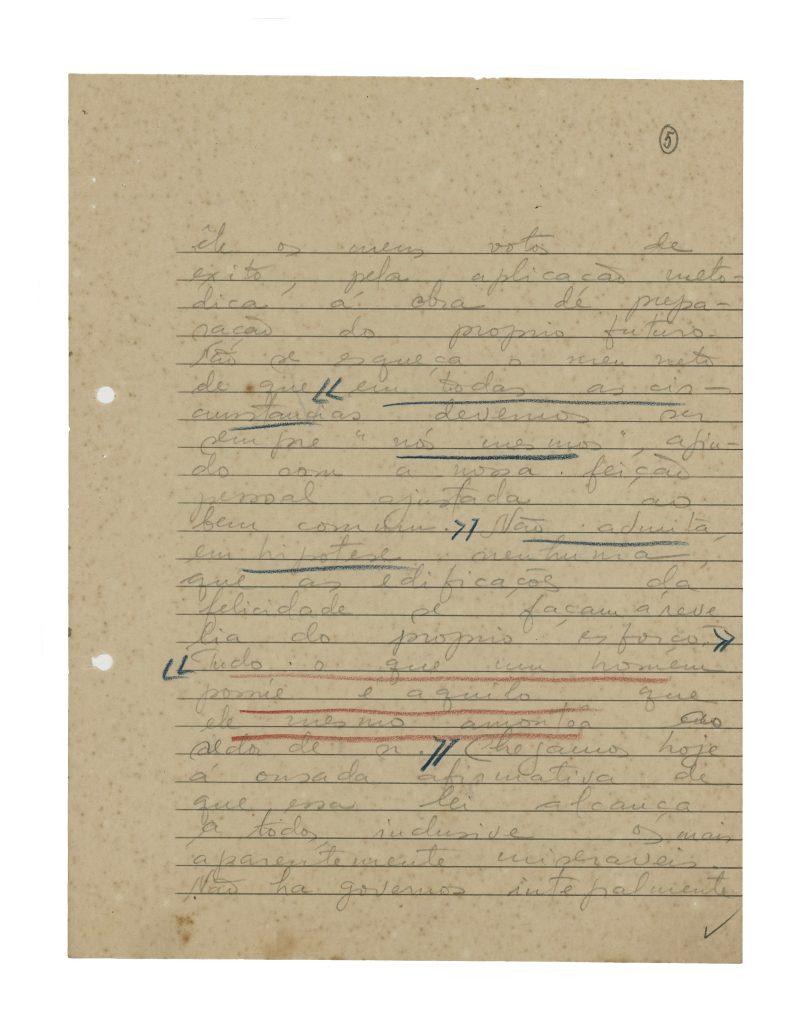 5
êle os meus votos de
exito, pela aplicação meto-
dica, á obra de prepa-
ração do proprio futuro.
Não se esqueça o meu neto
de que « em todas as cir-
cunstancias devemos ser
sempre "nós mesmos", agin-
do com a nossa feição
pessoal ajustada ao
bem comum. » Não admita,
em hipotese nenhuma,
que as edificações da
felicidade se façam á reve
lia do proprio esforço. »
« Tudo o que um homem
possúe é aquilo que
ele mesmo amontôa ao
redor de si. » Chegamos hoje
á ousada afirmativa de
que essa lei alcança
a todos, inclusive os mais
aparentemente miseraveis.
Não ha governos integralmente